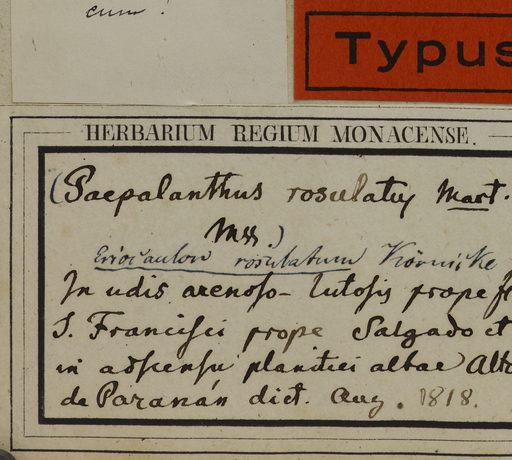 cum.
Typus
HERBARIUM REGIUM MONACENSE.
(Paepalanthus rosulatus Mart.
Mss.)
Eriocaulon rosulatum Körnicke
In udis arenoso-lutosis prope fl
S. Francisci prope Salgado et
in adscensu planitiei altae Alto
de Paranán dict. Aug. 1818.